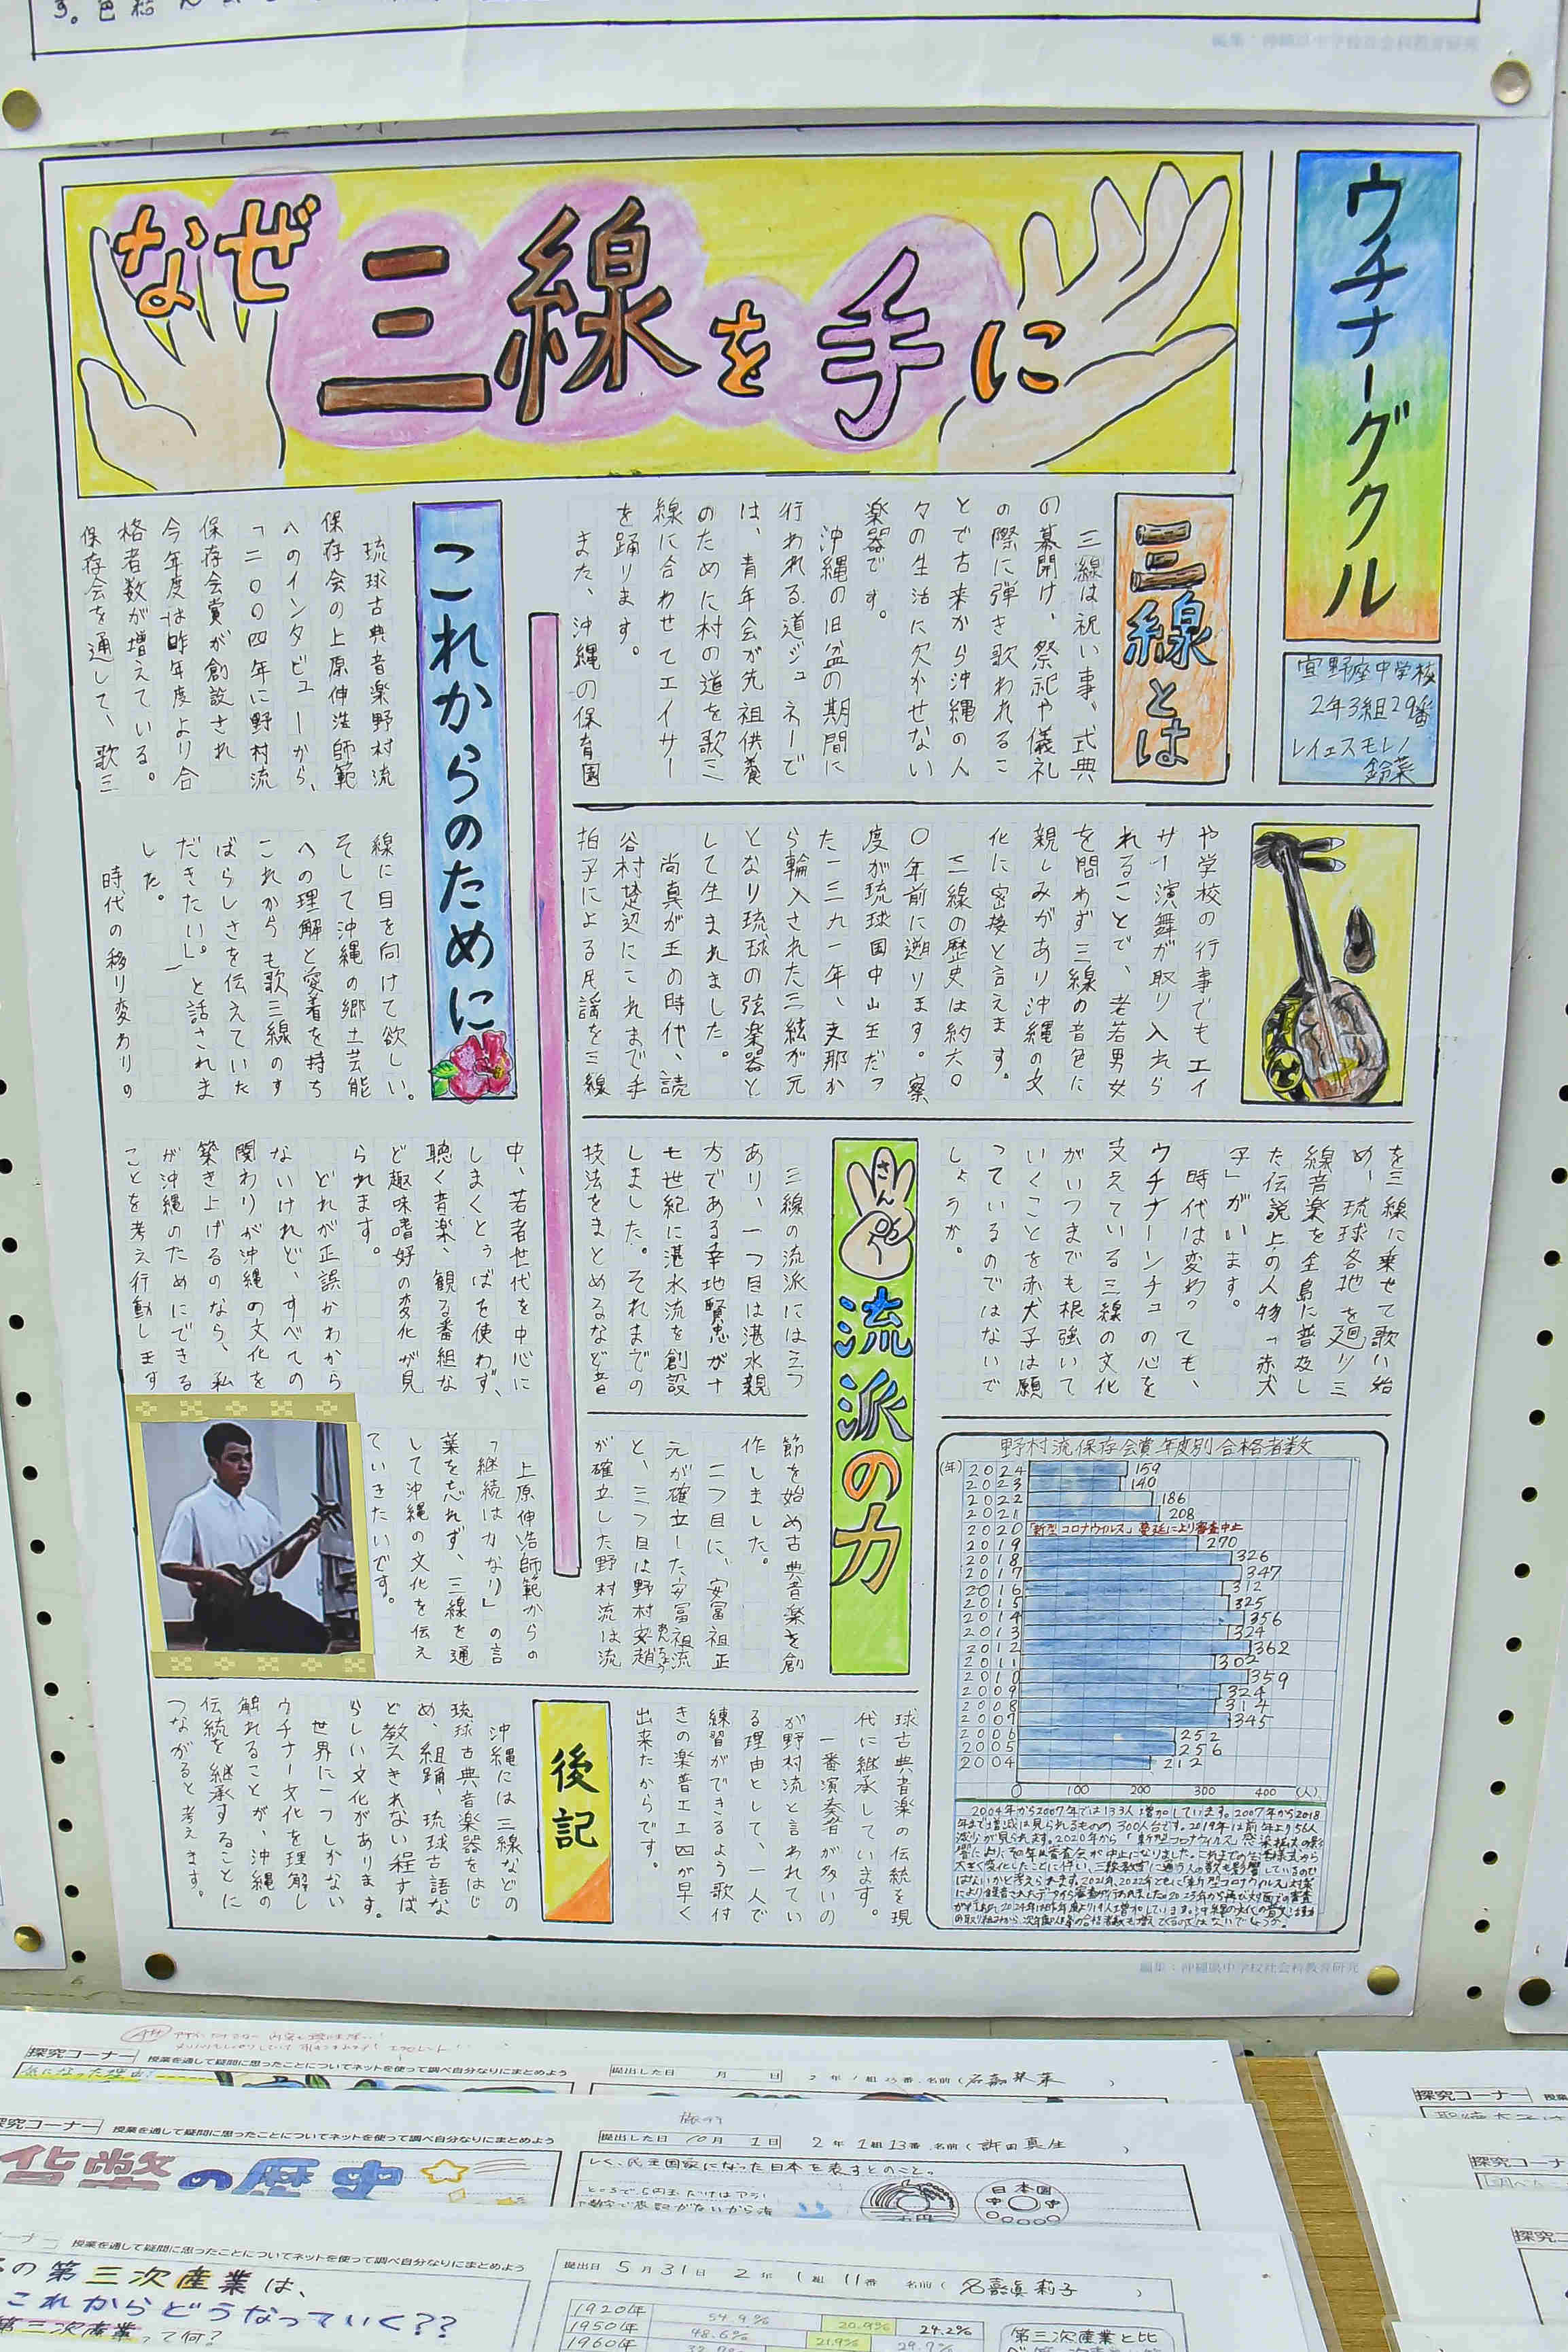 なぜ三線を手に
ウチナーグクル
宜野座中学校
2年3組29番
レイェスモレノ
鈴菜
三線とは
三線は祝い事、式典
の幕開け、祭祀や儀礼
の際に弾き歌われるこ
とで古来から沖縄の人
々の生活に欠かせない
楽器です。
沖縄の旧盆の期間に
行われる道ジュネーで
は、青年会が先祖供養
のために村の道を歌三
線に合わせてエイサー
を踊ります。
また、沖縄の保育園
や学校の行事でもエイ
サー演舞が取り入れら
れることで、老若男女
を問わず三線の音色に
親しみがあり沖縄の文
化に密接と言えます。
三線の歴史は約六〇
〇年前に遡ります。察
度が琉球国中山王だっ
た一三九一年、支那か
ら輸入された三絃が元
となり琉球の弦楽器と
して生まれました。
尚真が王の時代、読
谷村楚辺にこれまで手
拍子による民謡を三線
を三線に乗せて歌い始
め、琉球各地を廻り三
線音楽を全島に普及し
た伝説上の人物「赤犬
子」がいます。
時代は変わっても、
ウチナーンチュの心を
支えている三線の文化
がいつまでも根強いて
いくことを赤犬子は願
っているのではないで
しょうか。
さん
流派の力
三線の流派には三つ
あり、一つ目は湛水親
方である幸地賢忠が十
七世紀に湛水流を創設
しました。それまでの
技法をまとめるなど音
節を始め古典音楽を創
作しました。
二つ目に、安冨祖正
元が確立した安冨祖流
と、三つ目は野村安趙
が確立した野村流は流
球古典音楽の伝統を現
代に継承しています。
一番演奏者が多いの
が野村流と言われてい
る理由として、一人で
練習ができるよう歌付
きの楽譜工工四が早く
出来たからです。
野村流保存会賞年度別合格者数
(年)
2024 159
2023 140
2022 186
2021 208
2020 「新型コロナウイルス」蔓延により審査中止
2019 270
2018 326
2017 347
2016 312
2015 325
2014 356
2013 324
2012 362
2011 302
2010 359
2009 324
2008 314
2007 345
2006 252
2005 256
2004 212
0 100 200 300 400 (人)
2004年から2007年では133人増加しています。2007年から2018
年まで増減は見られるものの300人台です。2019年は前年より56人
減少が見られます。2020年から「新型コロナウイルス」感染拡大の影
これからのために
琉球古典音楽野村流
保存会の上原伸浩師範
へのインタビューから、
「二〇〇四年に野村流
保存会賞が創設され
今年度は昨年度より合
格者数が増えている。
保存会を通して、歌三
線に目を向けて欲しい。
そして沖縄の郷土芸能
への理解と愛着を持ち
これからも歌三線のす
ばらしさを伝えていた
だきたい。」と話されま
した。
時代の移り変わりの
中、若者世代を中心に
しまくとぅばを使わず、
聴く音楽、観る番組な
ど趣味嗜好の変化が見
られます。
どれが正誤かわから
ないけれど、すべての
関わりが沖縄の文化を
築き上げるのなら、私
が沖縄のためにできる
ことを考え行動します
上原伸浩師範からの
「継続は力なり」の言
葉を忘れず、三線を通
して沖縄の文化を伝え
ていきたいです。
後記
沖縄には三線などの
琉球古典音楽器をはじ
め、組踊、琉球古語な
ど教えきれない程すば
らしい文化があります。
世界に一つしかない
ウチナー文化を理解し
触れることが、沖縄の
伝統を継承することに
つながると考えます。
編集:沖縄県中学校社会科教育研究
探究コーナー 授業を通して疑問に思ったことについてネットを使って調べ自分なりにまとめよう
気になった理由
提出した日 月 日
探究コーナー 授業を通して疑問に思ったことについてネットを使って調べ自分なりにまとめよう
提出した日 10月 1日 2年1組13番 名前( 許田真生 )
貨幣の歴史
しく、民主国家になった日本を表すとのこと。
日本国
授業を通して疑問に思ったことについてネットを使って調べ自分なりにまとめよう
提出日 5月31日 2年1組11番 名前( 名嘉眞莉子 )
の第三次産業は、
これからどうなっていく??
第三次産業って何?
1920年 54.9% 20.9% 24.2%
1950年 48.6% 21.9% 29.7%
1960年
第三次産業と比
探究コーナー
探究コーナー
探究コ